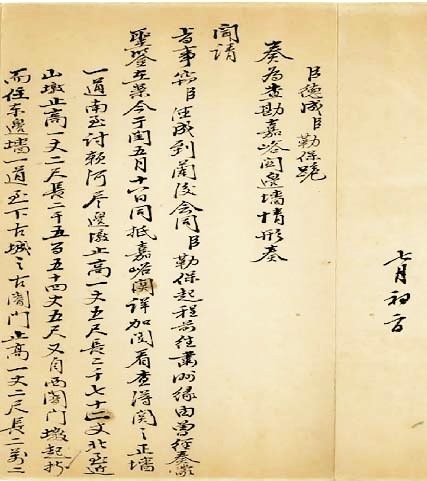 七月初
臣德成臣勒保跪
奏為查勘嘉峪関邊墻情形奏
聞請
旨事竊臣德成到蘭後會同臣勒保起程前徃肅州緣由曾經奏蒙
聖鑒在案今于閏五月十六日同抵嘉峪関詳加閱看查得関之正墻
一道南至討賴河尽邊墩止高一丈五尺長二千七十二丈北至近
山墩止高一丈二尺長二千五百五十四丈五尺又自西閘門墩起折
而徃東邊墻一道至下古城之古閘門止高一丈二尺長二萬二